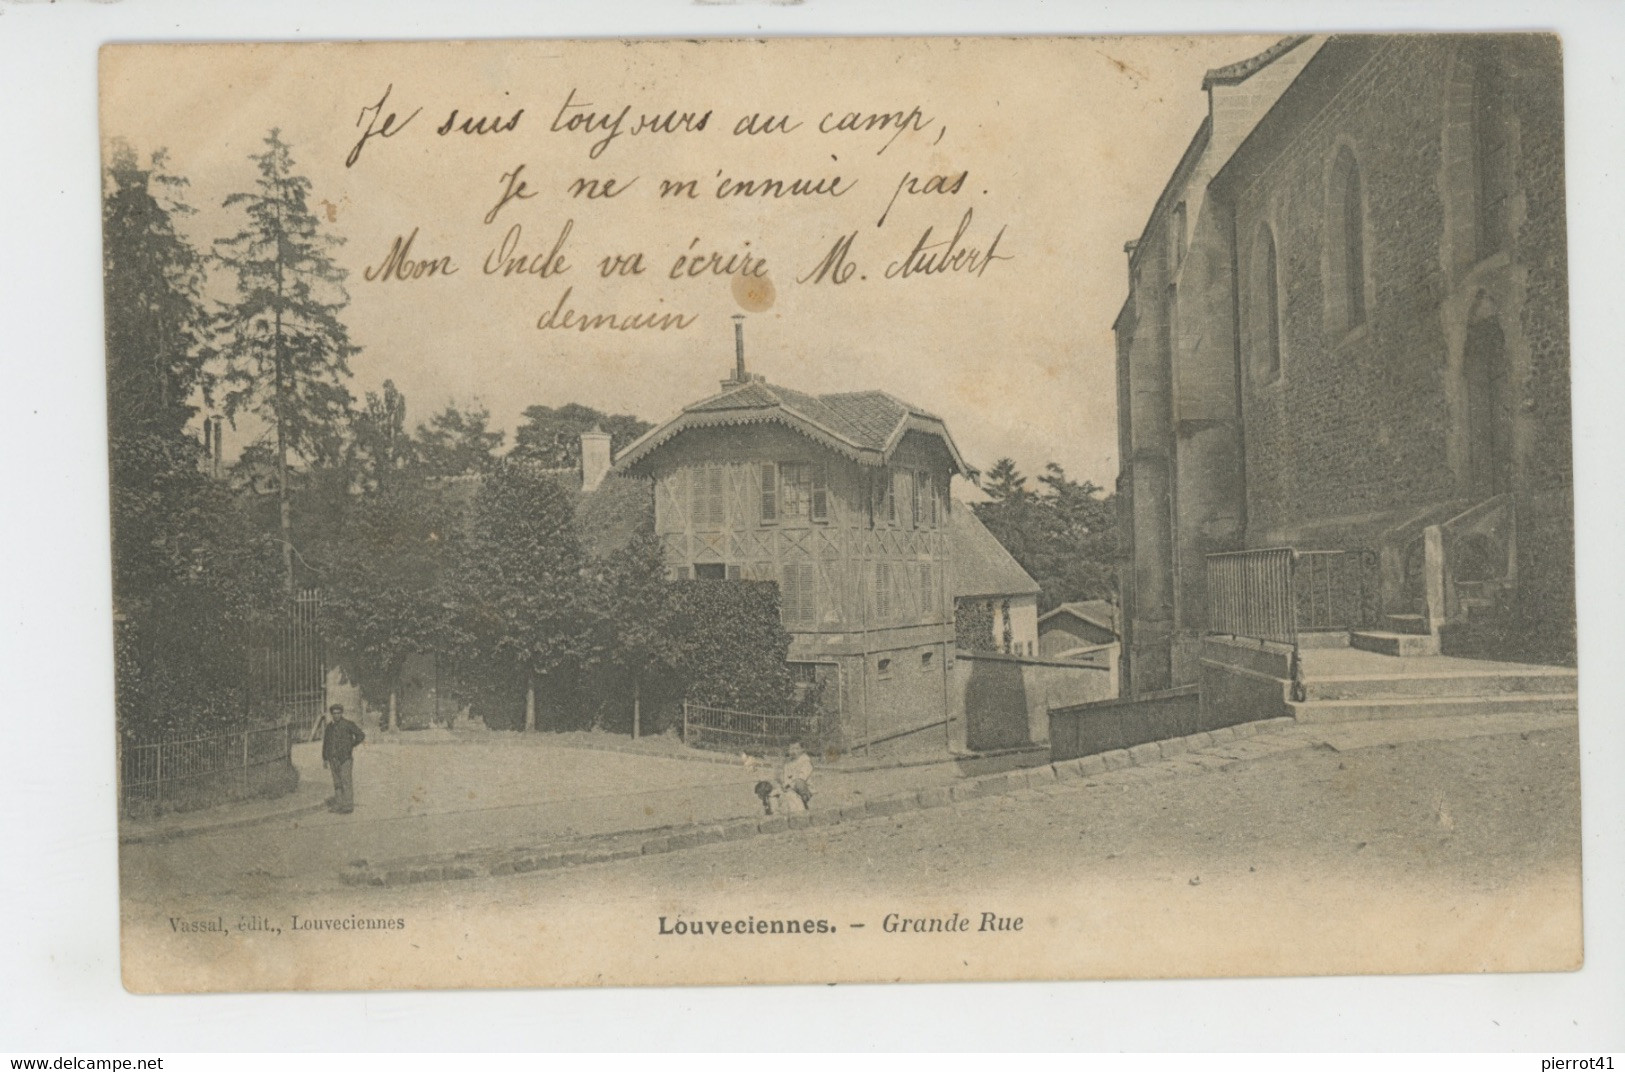 Je suis toujours au camp,
Je ne m'ennuie pas.
Mon Oncle va écrire M. Aubert
demain
Vassal, édit., Louveciennes
Louveciennes. – Grande Rue
www.delcampe.net
pierrot41